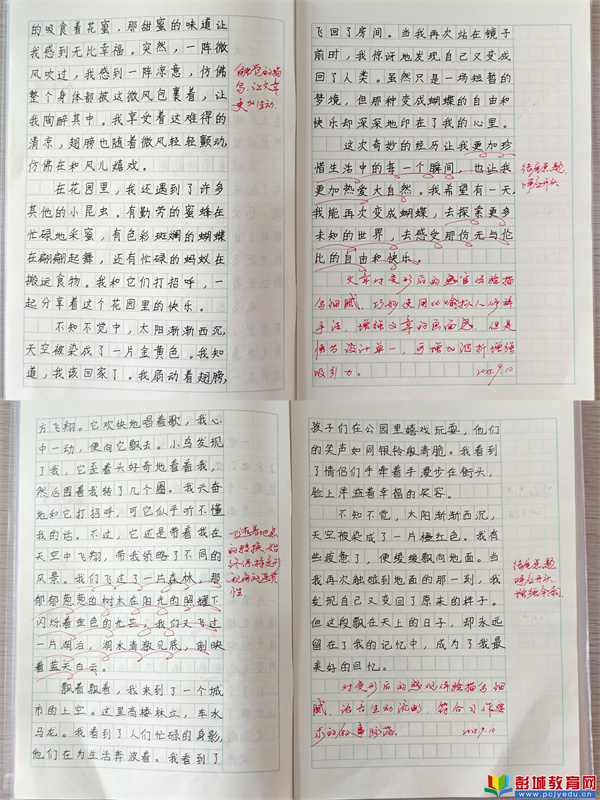 的吸食着花蜜，那甜蜜的味道让
我感到无比幸福。突然，一阵微
风吹过，我感到一阵凉意，仿佛
整个身体都被这微风包裹着，让
我陶醉其中。我享受着这难得的
清凉，翅膀也随着微风轻轻颤动，
仿佛在和风儿嬉戏。
在花园里，我还遇到了许多
其他的小昆虫。有勤劳的蜜蜂在
忙碌地采蜜，有色彩斑斓的蝴蝶
在翩翩起舞，还有忙碌的蚂蚁在
搬运食物。我和它们打招呼，一
起分享着这个花园里的快乐。
不知不觉中，太阳渐渐西沉，
天空被染成了一片金黄色。我知
道，我该回家了。我扇动着翅膀，
触觉的描
写，让文章
更加生动
飞回了房间。当我再次站在镜子
前时，我惊讶地发现自己又变成
回了人类。虽然只是一场短暂的
梦境，但那种变成蝴蝶的自由和
快乐却深深地印在了我的心里。
这次奇妙的经历让我更加珍
惜生活中的每一个瞬间，也让我
更加热爱大自然。我希望有一天，
我能再次变成蝴蝶，去探索更多
未知的世界，去感受那份无与伦
比的自由和快乐。
结尾点题，
呼应开头
文章对变形后的感官体验描
写细腻，巧妙运用比喻拟人修辞
手法，增强文章的画面感，但是
情节设计单一，可增加波折增强
吸引力。
2025.9.10
方飞翔。它欢快地唱着歌，我心
中一动，便向它飘去。小鸟发现
了我，它歪着头好奇地看着我，
然后围着我转了几个圈。我兴奋
地和它打招呼，可它似乎听不懂
我的话。不过，它还是带着我在
天空中飞翔，带我领略了不同的
风景。我们飞过了一片森林，那
郁郁葱葱的树木在阳光的照耀下
闪烁着金色的光芒，我们又飞过
一片湖泊，湖水清澈见底，倒映
着蓝天白云。
飘着飘着，我来到了一个城
市的上空。这里高楼林立，车水
马龙。我看到了人们忙碌的身影，
他们在为生活奔波着。我看到了
着地点
的转换，始
终保持变形
视角的连贯
性
孩子们在公园里嬉戏玩耍，他们
的笑声如同银铃般清脆。我看到
了情侣们手牵着手漫步在街头，
脸上洋溢着幸福的笑容。
不知不觉，太阳渐渐西沉，
天空被染成了一片橙红色。我有
些疲惫了，便缓缓飘向地面。当
我再次触碰到地面的那一刻，我
发现自己又变回了原来的样子。
但这段飘在天上的日子，却永远
留在了我的记忆中，成为了我最
美好的回忆。
结尾点题
呼应开头，
增强余韵
对变形后的感觉体验描写细
腻，语言生动流畅，符合习作要
求的叙事脉络。
2025.9.10
彭城教育网
www.pcjyedu.cn